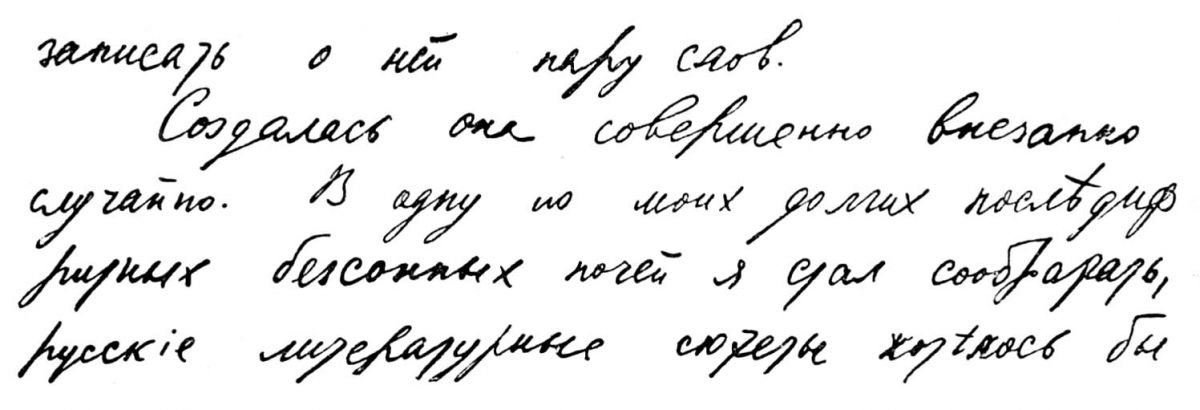 записать о ней пару слов.
Создалась она совершенно внезапно
случайно. В одну из моих долгих послѣдиф
ритных безсонных ночей я стал соображать,
русскіе литературные сюжеты хотѣлось бы